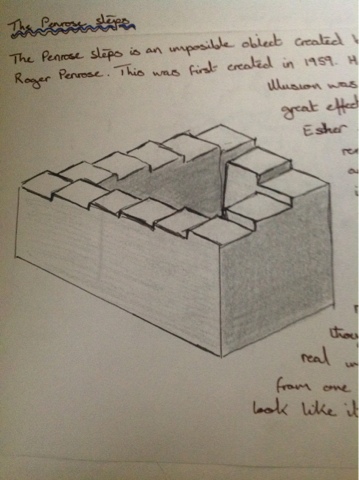 The Penrose steps
The Penrose steps is an imposible object created
Roger Penrose. This was first created in 1959. H
Illusion was
great effect
Esher
real
from one
look like it